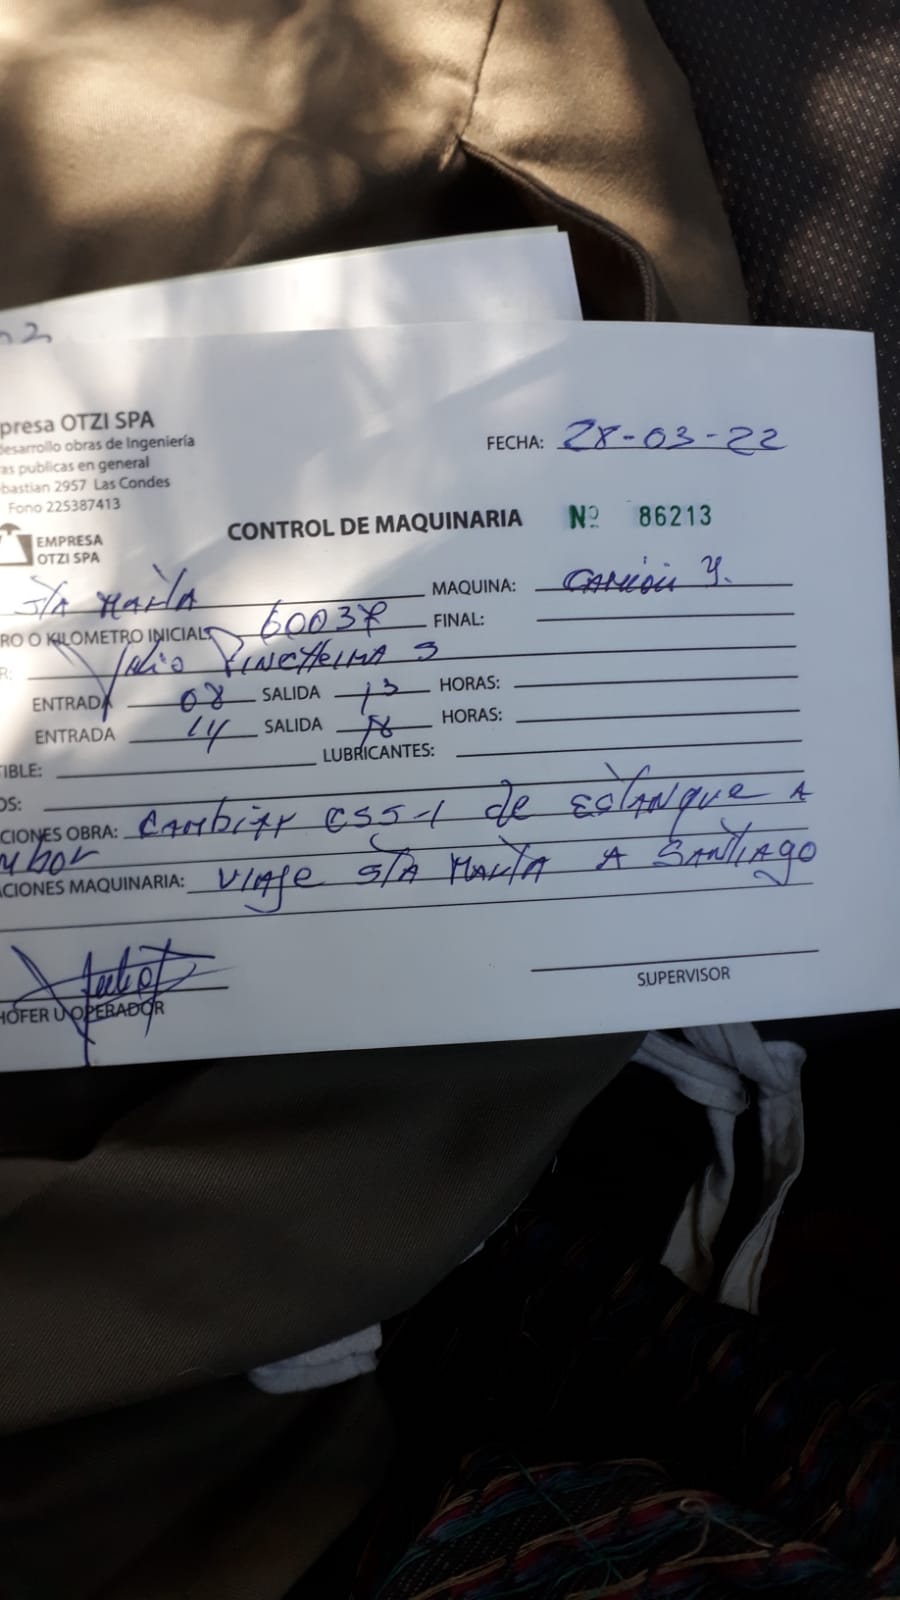 presa OTZI SPA
desarrollo obras de Ingeniería
as publicas en general
bastian 2957 Las Condes
Fono 225387413
FECHA: 28-03-22
EMPRESA
OTZI SPA
CONTROL DE MAQUINARIA Nº 86213
STA MARTA MAQUINA: CAMIÓN
RO O KILOMETRO INICIAL FINAL:
R: Julio
ENTRADA 08 SALIDA 13 HORAS:
ENTRADA 14 SALIDA 18 HORAS:
TIBLE: LUBRICANTES:
OS:
CIONES OBRA: Cambiar CSS-1 de ESTANque A
mbor
ACIONES MAQUINARIA: VIAJe STA MARTA A SANTIAgo
HOFER U OPERADOR
SUPERVISOR